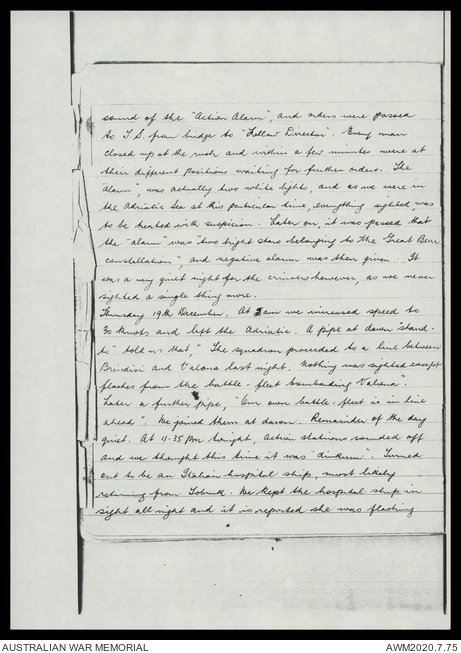 sound of the "Action Alarm", and orders were passed
to T.S. from bridge to "Follow Director". Every man
closed up at the rush and within a few minutes were at
their different positions waiting for further orders. The
alarm", was actually two white lights, and as we were in
the Adriatic Sea at this particular time, everything sighted was
to be treated with suspicion. Later on, it was passed that
the "alarm" was "two bright stars belonging to the Great Bear
constellation", and negative alarm was then given. It
was a very quiet night for the cruisers however, as we never
sighted a single thing more.
Thursday 19th December. At 2am we increased speed to
30 knots and left the Adriatic. A pipe at dawn "stand-
to" told us that, "The squadron proceeded to a line between
Brindisi and Valona last night. Nothing was sighted except
flashes from the battle-fleet bombarding Valona".
Later a further pipe, "Our own battle-fleet is in line
ahead". We joined them at dawn. Remainder of the day
quiet. At 11-35 pm tonight, action stations sounded off
and we thought this time it was "dinkum". Turned
out to be an Italian hospital ship, most likely
returning from Tobruk. We kept the hospital ship in
sight all night and it is reported she was flashing
AUSTRALIAN WAR MEMORIAL
AWM2020.7.75